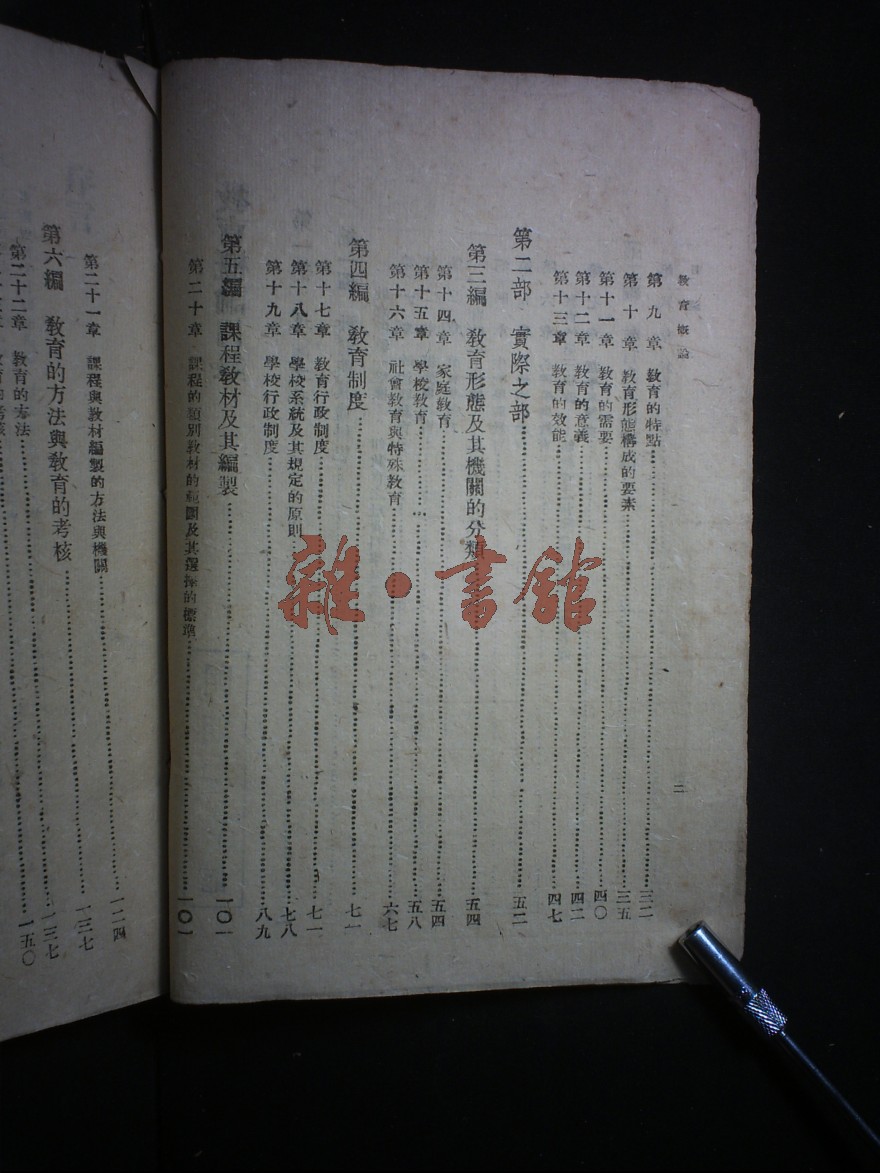 教育概論
二
第九章 教育的特點 三二
第十章 教育形態構成的要素 三五
第十一章 教育的需要 四〇
第十二章 教育的意義 四二
第十三章 教育的效能 四七
第二部 實際之部 五二
第三編 教育形態及其機關的分類 五四
第十四章 家庭教育 五四
第十五章 學校教育 五八
第十六章 社會教育與特殊教育 六七
第四編 教育制度 七一
第十七章 教育行政制度 七一
第十八章 學校系統及其規定的原則 七八
第十九章 學校行政制度 八九
第五編 課程教材及其編製 一〇一
第二十章 課程的類別教材的範圍及其選擇的標準 一〇一
第二十一章 課程與教材編製的方法與機關 一二四
第六編 教育的方法與教育的考核 一三七
第二十二章 教育的方法 一三七
一五〇
雜·書館